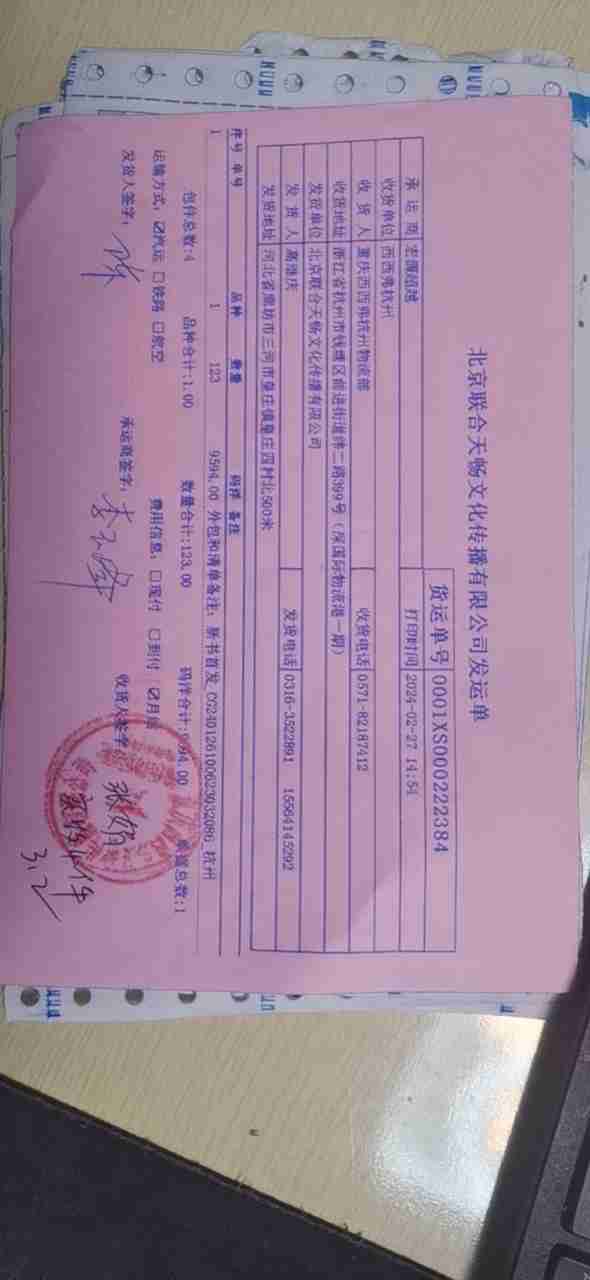 北京联合天畅文化传播有限公司发运单
货运单号 0001XS000222384
承运商 宏源超越 打印时间 2024-02-27 14:54
收货单位 西西弗杭州
收货人 重庆西西弗杭州物流部 收货电话 0571-82187412
收货地址 浙江省杭州市钱塘区前进街道纬二路399号(深国际物流港一期)
发货单位 北京联合天畅文化传播有限公司
发货人 葛继庆 发货电话 0316-3522891 15564145292
发货地址 河北省廊坊市三河市皇庄镇皇庄四村北500米
序号 单号 品种 数量 码洋 备注
1 1 123 9594.00 外包和清单备注:新书首发 CG2401261006230320086 杭州
包件总数:4 品种合计:1.00 数量合计:123.00 码洋合计:9594.00 单据总数:1
运输方式:☑汽运 □铁路 □航空 费用信息:□现付 □到付 ☑月结
发货人签字: 承运商签字: 收货人签字 张娟
实收4件
3.2